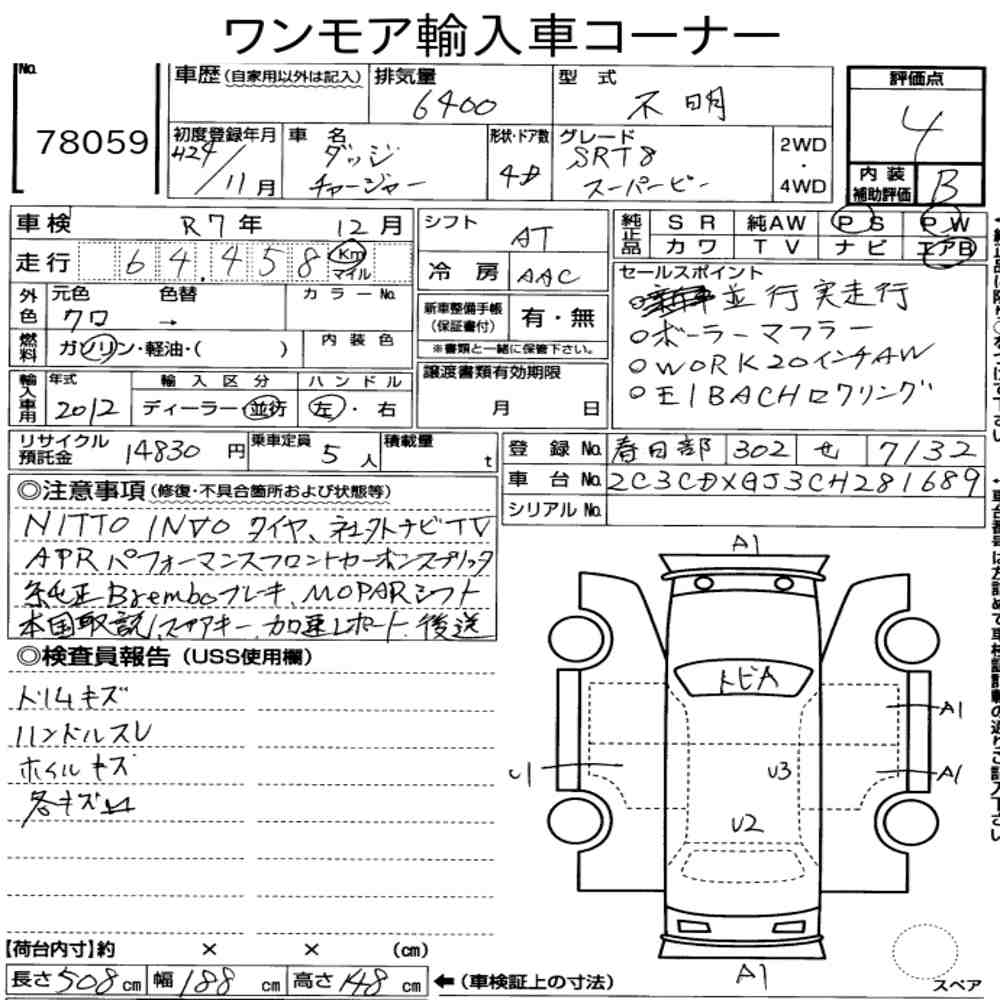 ワンモア輸入車コーナー
No.
78059
車歴(自家用以外は記入)
排気量
6400
型 式
不明
評価点
4
内装補助評価
B
初度登録年月
H24/11月
車 名
ダッジ
チャージャー
形状・ドア数
4D
グレード
SRT8
スーパービー
2WD
・
4WD
車検 R7年 12月
走行 64,458 Km マイル
シフト
AT
冷 房
AAC
純正品
S R 純AW P S P W
カワ T V ナビ エアB
外色
元色 色替 カラーNo.
クロ →
燃料
ガソリン・軽油・( )
内装色
新車整備手帳(保証書付)
有・無
※書類と一緒に保管下さい。
セールスポイント
並行実走行
○ボーラーマフラー
○WORK20インチAW
○EIBACHロワリング
輸入車用
年式
2012
輸入区分
ディーラー・並行
ハンドル
左・右
譲渡書類有効期限
月 日
リサイクル預託金 14830円
乗車定員 5人
積載量 t
登録No. 春日部 302 せ 7132
車台No. 2C3CDXGJ3CH281689
シリアルNo.
◎注意事項(修復・不具合箇所および状態等)
NITTO INVO タイヤ、社外ナビTV
APRパフォーマンスフロントカーボンスプリッタ
純正Bremboブレーキ、MOPARシフト
本国取説、スペアキー、加速レポート 後送
◎検査員報告(USS使用欄)
ドリムキズ
ハンドルスレ
ホイルキズ
各キズ凹
A1
トビA
A1
A1
U1
U3
U2
A1
【荷台内寸】約 × × (cm)
長さ508cm 幅188cm 高さ148cm ←(車検証上の寸法)
スペア